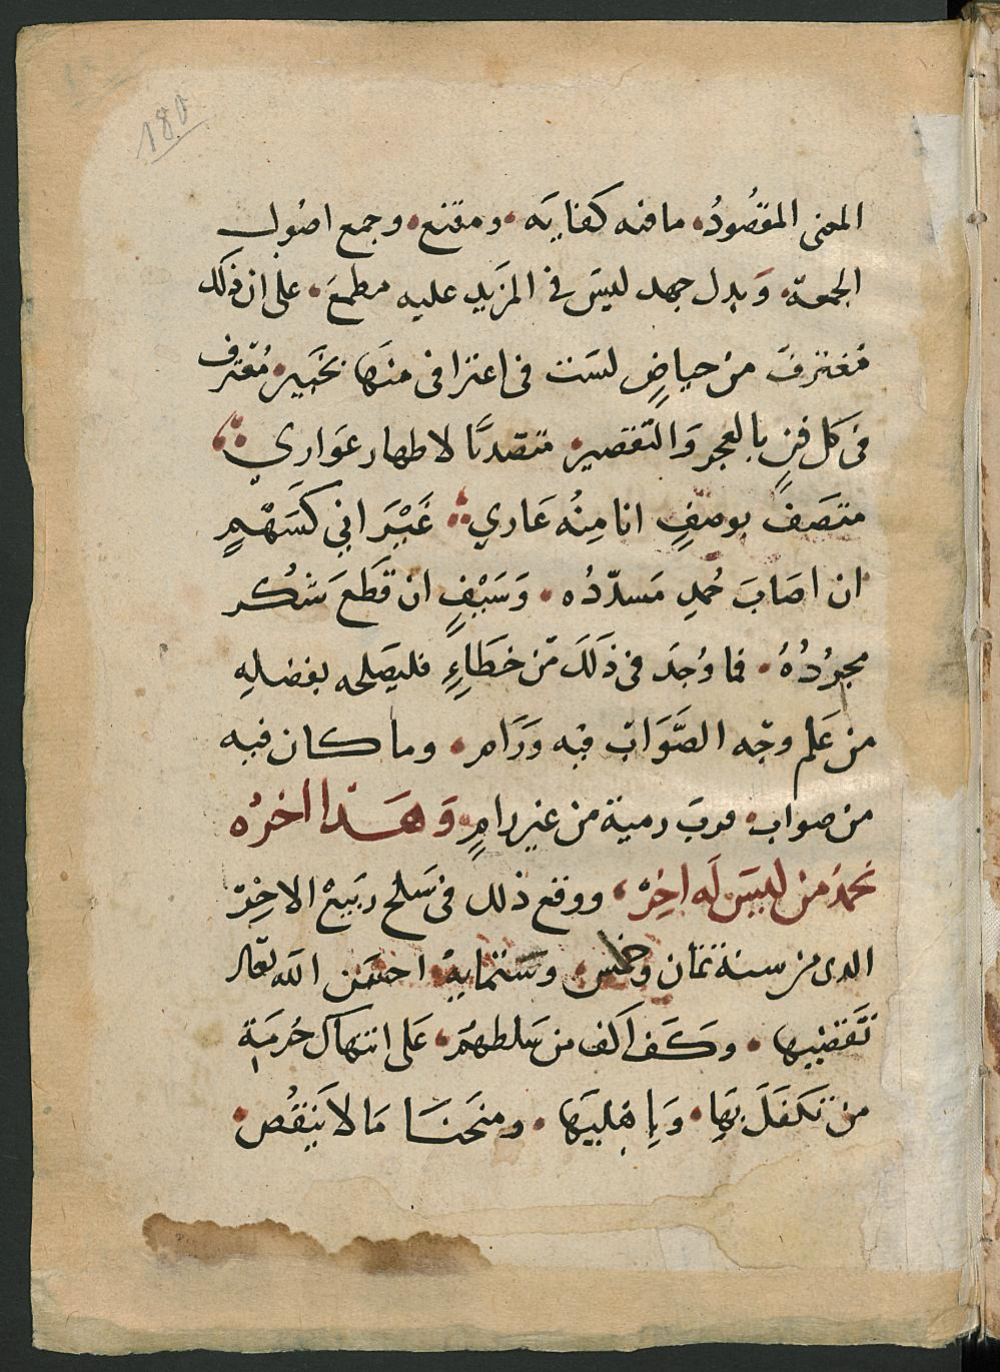 180
المعنى المقصُودُ مافيه كفايَه ومقنع وجمع اصُول
الجمعة وَبدل جهد ليسَ في المزيد عليه مطمعَ على ان ذلك
مغترفَ من حياضٍ لسَت في اعترافى منهَا بخَبير مُقترف
فى كل فنٍ بالعجز وَالتقصير متصديًا لاظهار عوَاري
متصَف بوصفٍ انا مِنُه عَاري غَيرَ اني كسَهْمٍ
ان اصَابَ حُمدِ مَسدّدُه وَسَيْفٍ ان قَطَعَ شكر
مجرُدُهُ فما وُجدَ فى ذَلكَ مّن خطَاءٍ فليصَلحه بفضلهِ
من عَلم وجَه الصَّوَاب فيه وَرَام وما كان فيه
من صواب فربَ رمية من غير رامٍ وَهَذا اخرُه
نحمدُ من ليسَ لَه اخِرْ ووقع ذلك فى سَلخ ربَيعْ الاخِرْ
الدى من سنة ثمان وخمس وستمايةْ احسَن الله تعَالى
تَقَضيْها وكَف اكف من سَلطهُم عَلى انتهاك حُرمَة
من تكفلَ بهَا وَبِاهْليهَا ومنحَنا مَا لا يَنقُص